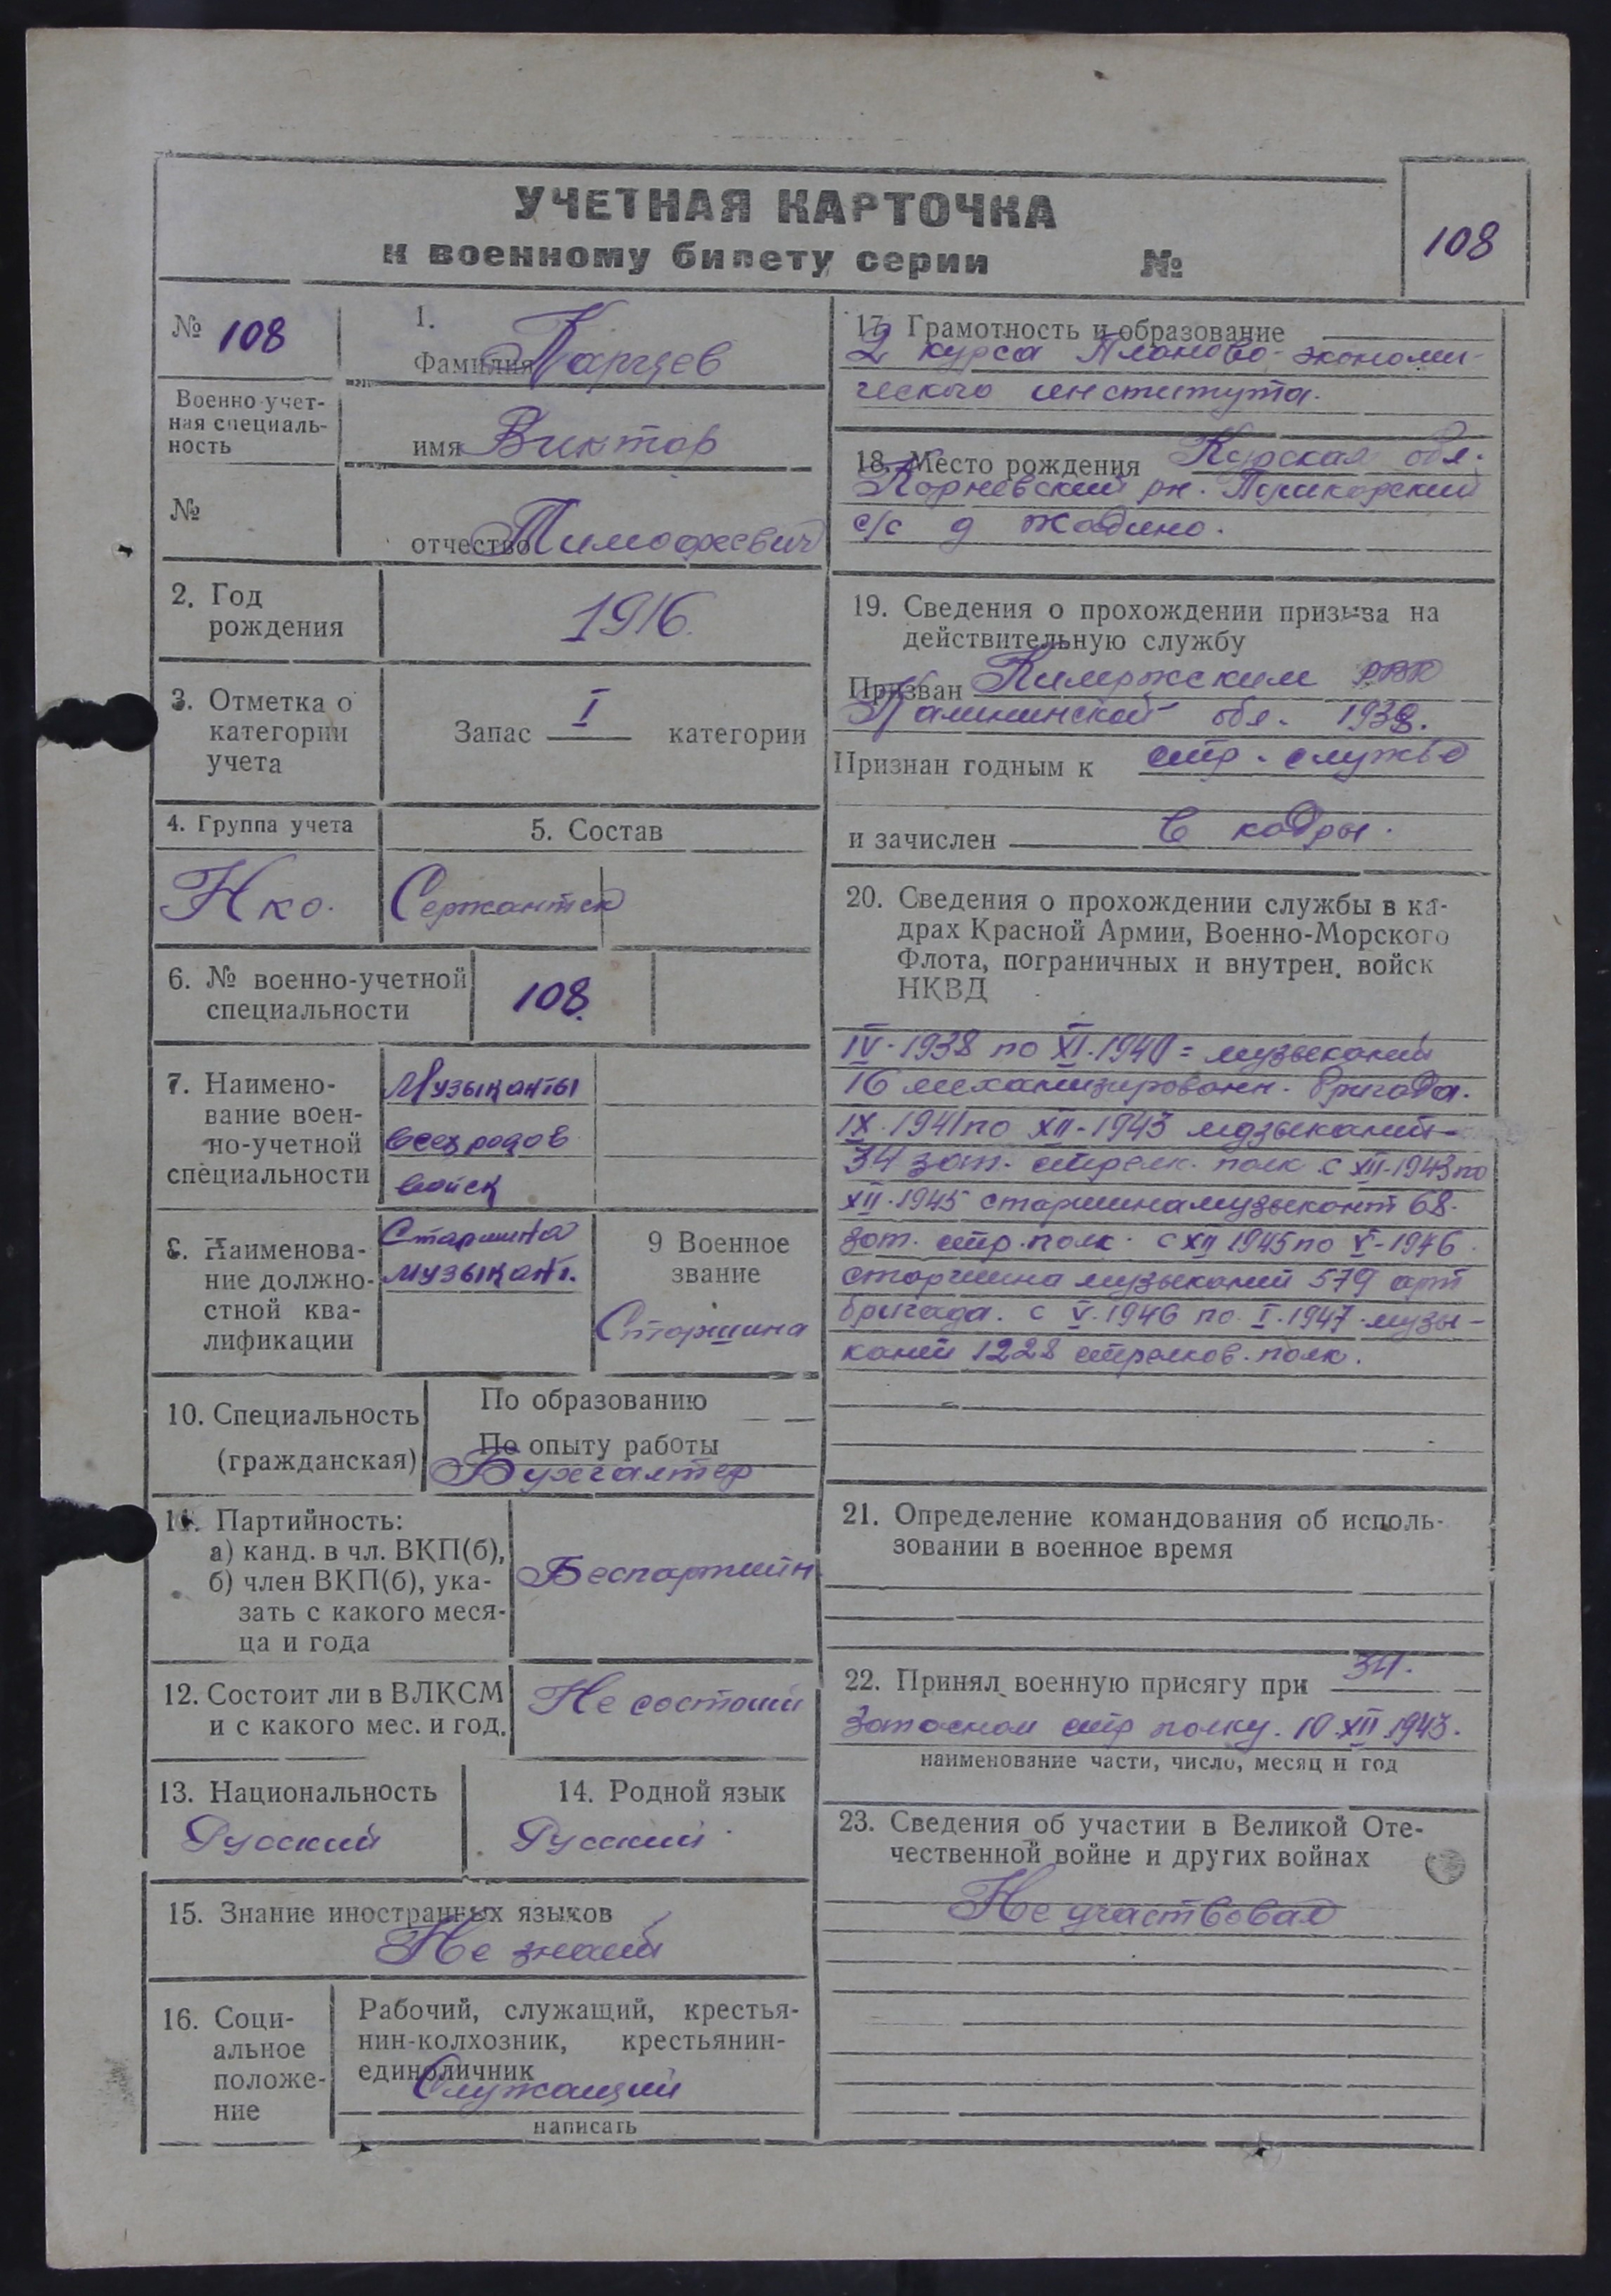 УЧЕТНАЯ КАРТОЧКА
к военному билету серии №
108
№ 108
Военно-учет-
ная специаль-
ность
№
1.
Фамилия
имя Виктор
отчество Тимофеевич
2. Год
рождения
1916.
3. Отметка о
категории
учета
Запас I категории
4. Группа учета
Нко.
5. Состав
Сержантск
6. № военно-учетной
специальности
108.
7. Наимено-
вание воен-
но-учетной
специальности
Музыканты
всех родов
войск
8. Наименова-
ние должно-
стной ква-
лификации
Старшина
музыкант.
9 Военное
звание
Старшина
10. Специальность
(гражданская)
По образованию
По опыту работы
Бухгалтер
11. Партийность:
а) канд. в чл. ВКП(б),
б) член ВКП(б), ука-
зать с какого меся-
ца и года
Беспартийн
12. Состоит ли в ВЛКСМ
и с какого мес. и год.
Не состоит
13. Национальность
Русский
14. Родной язык
Русский
15. Знание иностранных языков
Не знает
16. Соци-
альное
положе-
ние
Рабочий, служащий, крестья-
нин-колхозник, крестьянин-
единоличник
Служащий
написать
17. Грамотность и образование
2 курса Планово-экономи-
ческого института.
18. Место рождения Курская обл.
Корневский рн.
с/с д Жадино.
19. Сведения о прохождении призыва на
действительную службу
Призван Кимржским РВК
Калининской обл. 1938.
Признан годным к стр. службе
и зачислен в кадры.
20. Сведения о прохождении службы в ка-
драх Красной Армии, Военно-Морского
Флота, пограничных и внутрен. войск
НКВД
IV-1938 по XI.1940 = музыкант
16 механизированн. бригада.
IX.1941 по XII-1943 музыкант
34 зап. стрелк. полк с XII-1943 по
XII.1945 старшина музыкант 68.
зап. стр. полк. с XII 1945 по V-1946.
старшина музыкант 579 арт
бригада. с V.1946 по I.1947 музы-
кант 1228 стрелков. полк.
21. Определение командования об исполь-
зовании в военное время
22. Принял военную присягу при 34.
Запасном стр полку. 10.XII.1943.
наименование части, число, месяц и год
23. Сведения об участии в Великой Оте-
чественной войне и других войнах
Не участвовал